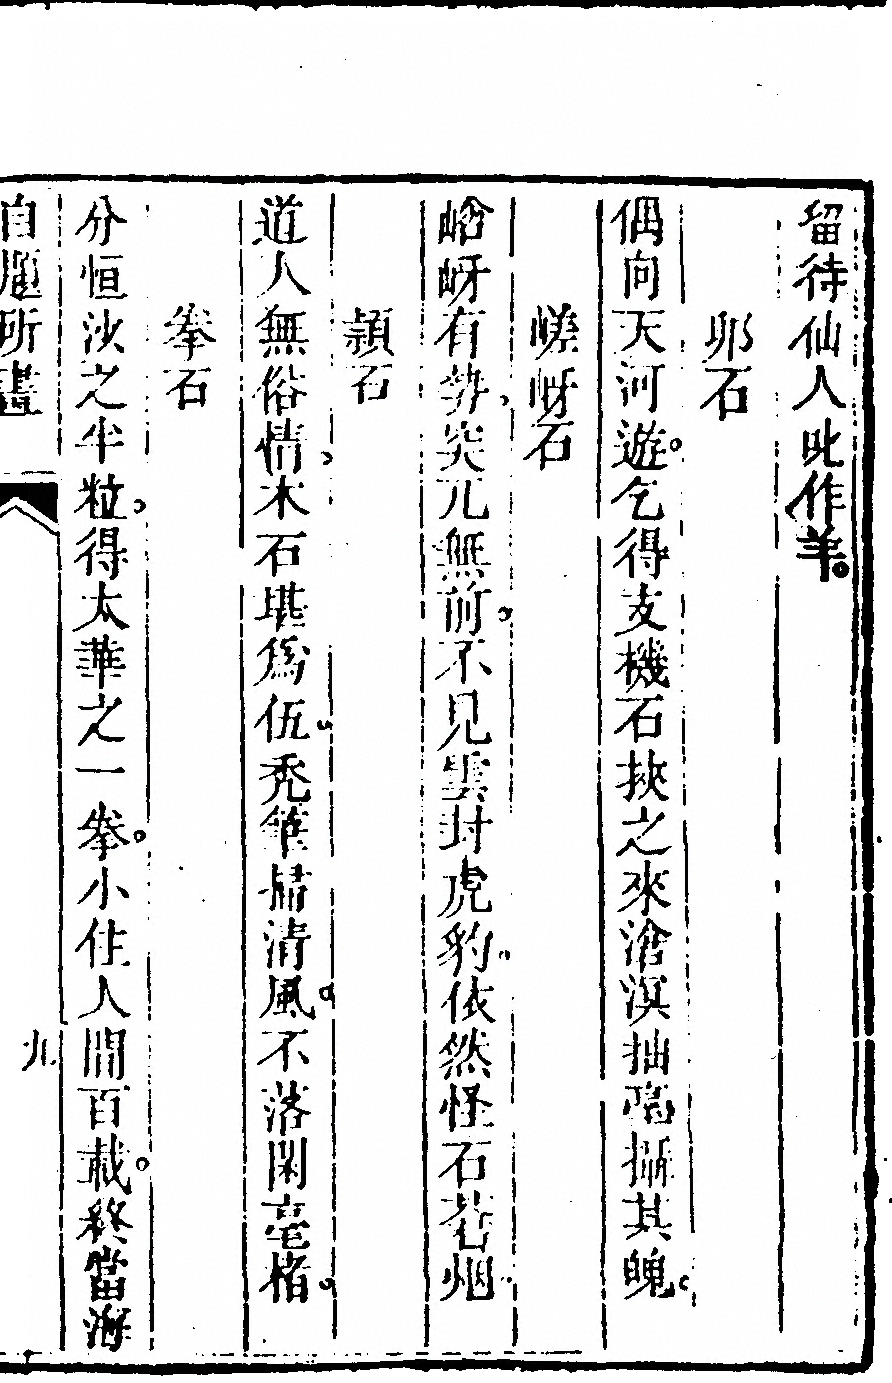 留待仙人叱作羊
卵石
偶向天河遊乞得支機石挾之來滄溟抽毫攝其魄
嵯岈石
峆岈有勢突兀無前不見雲封虎豹依然怪石苍烟
頴石
道人無俗情木石堪為伍秃筆掃清風不落閑毫楮
拳石
分恒沙之半粒得太華之一拳小住人間百載終當海
自題所畫
九